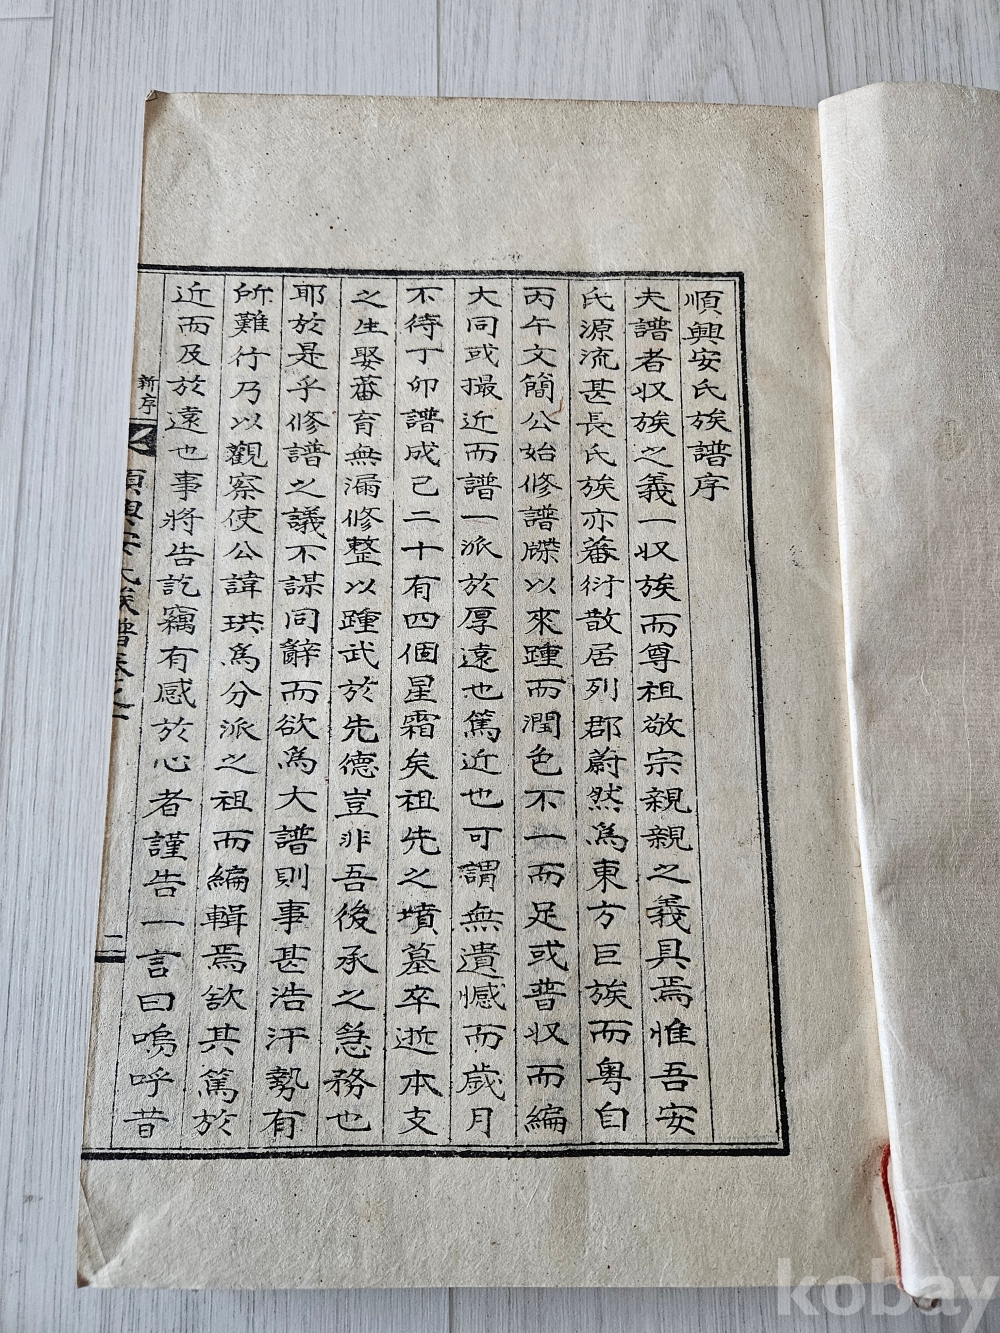 順興安氏族譜序
夫譜者収族之義一収族而尊祖敬宗親親之義具焉惟吾安
氏源流甚長氏族亦蕃衍散居列郡蔚然為東方巨族而粤自
丙午文簡公始修譜牒以來踵而潤色不一而足或普収而編
大同或撮近而譜一派於厚遠也篤近也可謂無遺憾而歲月
不待丁卯譜成已二十有四個星霜矣祖先之墳墓卒逝本支
之生娶蕃育無漏修整以踵武於先德豈非吾後承之急務也
耶於是乎修譜之議不謀同辭而欲為大譜則事甚浩汗勢有
所難行乃以觀察使公諱珙為分派之祖而編輯焉欲其篤於
近而及於遠也事將告訖竊有感於心者謹告一言曰嗚呼昔
新序
順興安氏族譜卷之一
一
kobay